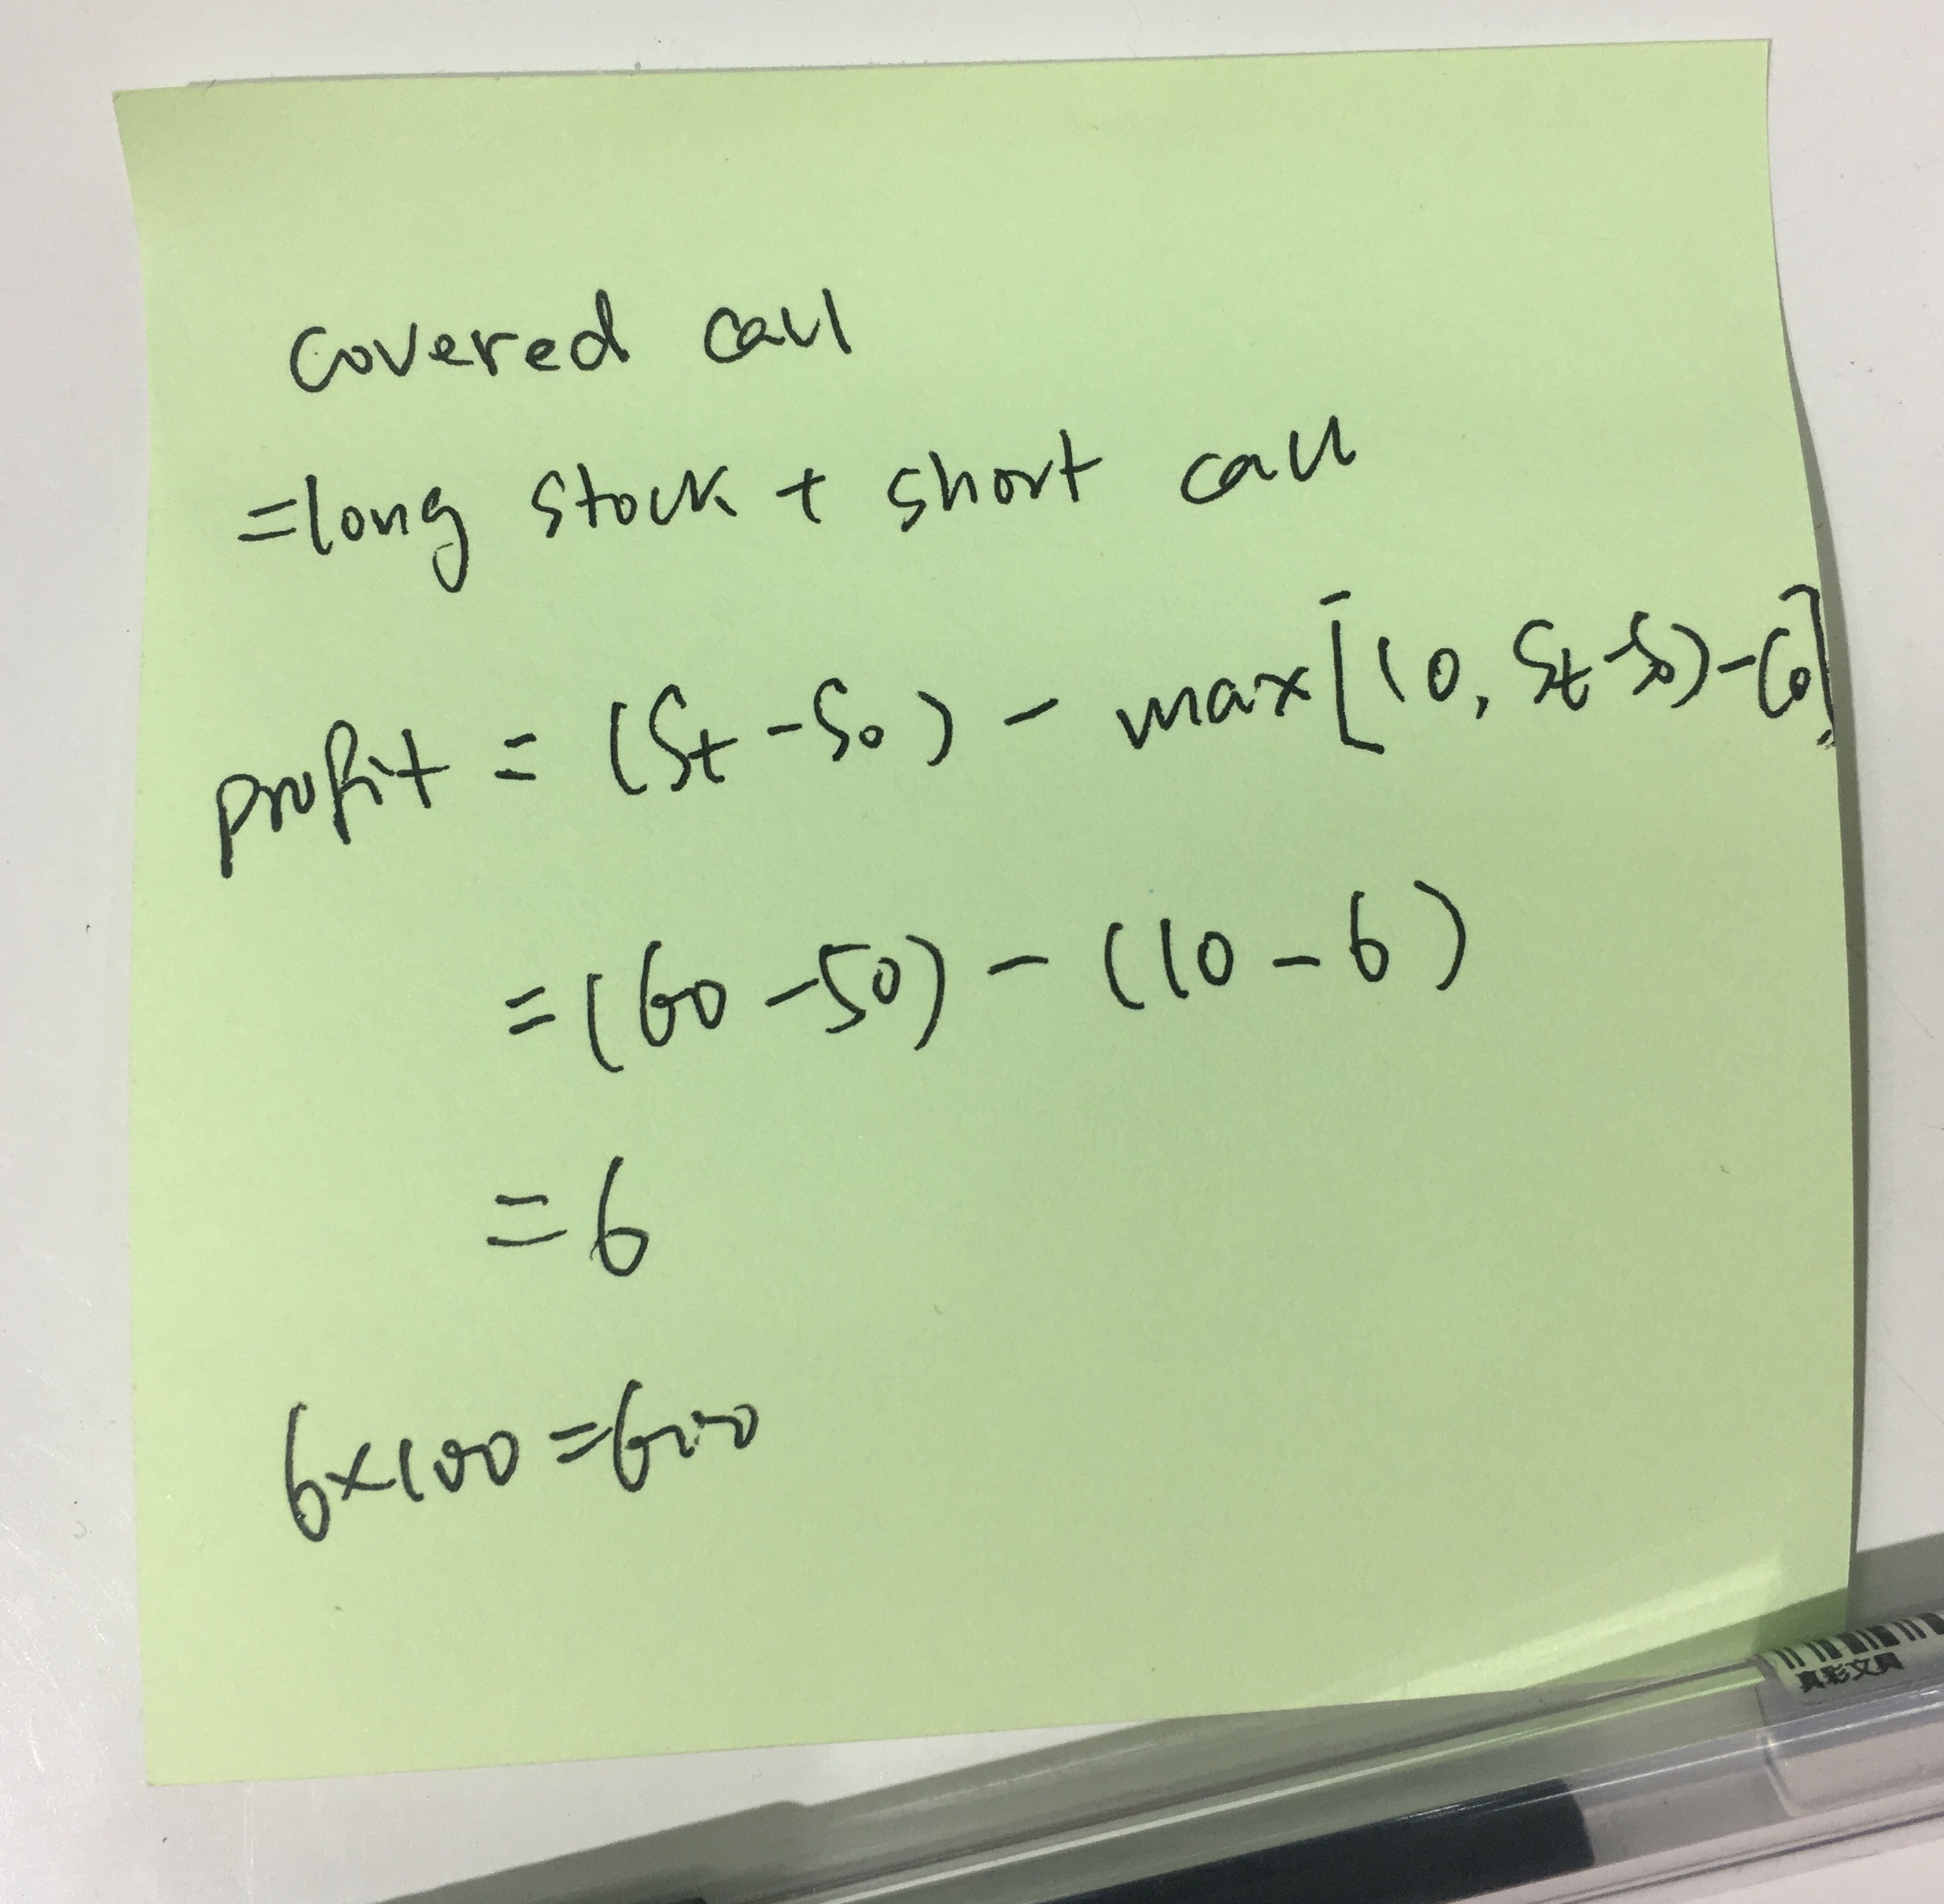 covered call
=long stock + short call
profit = (St - S0) - max[(0, St - S0) - C0]
= (60 - 50) - (10 - 6)
= 6
6×100=600
真彩文具